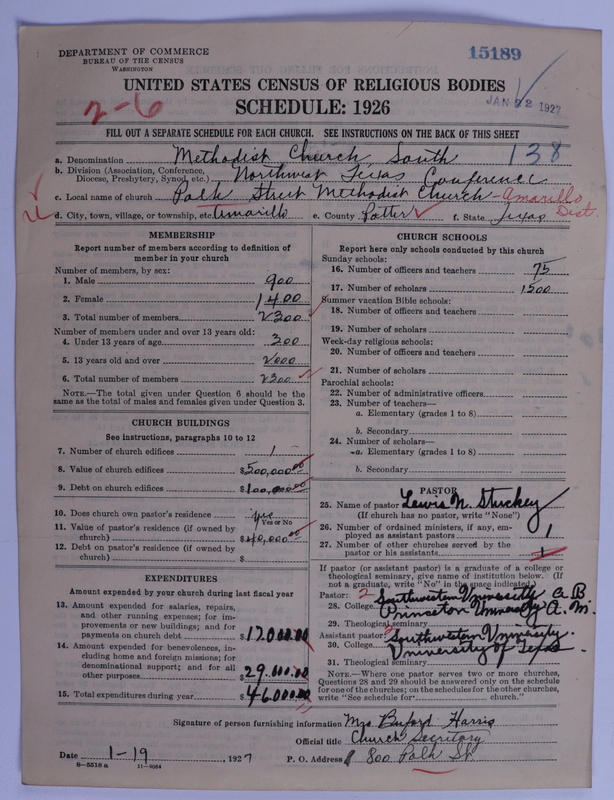 DEPARTMENT OF COMMERCE
BUREAU OF THE CENSUS
WASHINGTON
15189
UNITED STATES CENSUS OF RELIGIOUS BODIES
SCHEDULE: 1926
2-6
JAN 22 1927
FILL OUT A SEPARATE SCHEDULE FOR EACH CHURCH. SEE INSTRUCTIONS ON THE BACK OF THIS SHEET
a. Denomination Methodist Church South 138
b. Division (Association, Conference, Diocese, Presbytery, Synod, etc.) Northwest Texas Conference
c. Local name of church Polk Street Methodist Church - Amarillo Dist.
d. City, town, village, or township, etc. Amarillo e. County Potter f. State Texas
MEMBERSHIP
Report number of members according to definition of
member in your church
Number of members, by sex:
1. Male 900
2. Female 1400
3. Total number of members 2300
Number of members under and over 13 years old:
4. Under 13 years of age 300
5. 13 years old and over 2000
6. Total number of members 2300
NOTE.—The total given under Question 6 should be the
same as the total of males and females given under Question 3.
CHURCH BUILDINGS
See instructions, paragraphs 10 to 12
7. Number of church edifices 1
8. Value of church edifices $500,000.00
9. Debt on church edifices $100,000.00
10. Does church own pastor's residence? yes
Yes or No
11. Value of pastor's residence (if owned by
church) $40,000.00
12. Debt on pastor's residence (if owned by
church) $
EXPENDITURES
Amount expended by your church during last fiscal year
13. Amount expended for salaries, repairs,
and other running expenses; for im-
provements or new buildings; and for
payments on church debt $17,000.00
14. Amount expended for benevolences, in-
cluding home and foreign missions; for
denominational support; and for all
other purposes 29,000.00
15. Total expenditures during year $46,000.00
CHURCH SCHOOLS
Report here only schools conducted by this church
Sunday schools:
16. Number of officers and teachers 75
17. Number of scholars 1500
Summer vacation Bible schools:
18. Number of officers and teachers
19. Number of scholars
Week-day religious schools:
20. Number of officers and teachers
21. Number of scholars
Parochial schools:
22. Number of administrative officers
23. Number of teachers—
a. Elementary (grades 1 to 8)
b. Secondary
24. Number of scholars—
a. Elementary (grades 1 to 8)
b. Secondary
PASTOR
25. Name of pastor Lewis N. Stuckey
(If church has no pastor, write "None")
26. Number of ordained ministers, if any, em-
ployed as assistant pastors 1
27. Number of other churches served by the
pastor or his assistants 1
If pastor (or assistant pastor) is a graduate of a college or
theological seminary, give name of institution below. (If
not a graduate, write "No" in the space indicated)
Pastor: 2 Southwestern University A B
28. College Princeton University A. M.
29. Theological seminary
Assistant pastor: 2 Southwestern University
30. College University of Texas
31. Theological seminary
NOTE.—Where one pastor serves two or more churches,
Questions 28 and 29 should be answered only on the schedule
for one of the churches; on the schedules for the other churches,
write "See schedule for church."
Signature of person furnishing information Mrs Buford Harris
Official title Church Secretary
Date 1-19, 1927 P. O. Address 800 Polk St
8-5518 a 11-9064